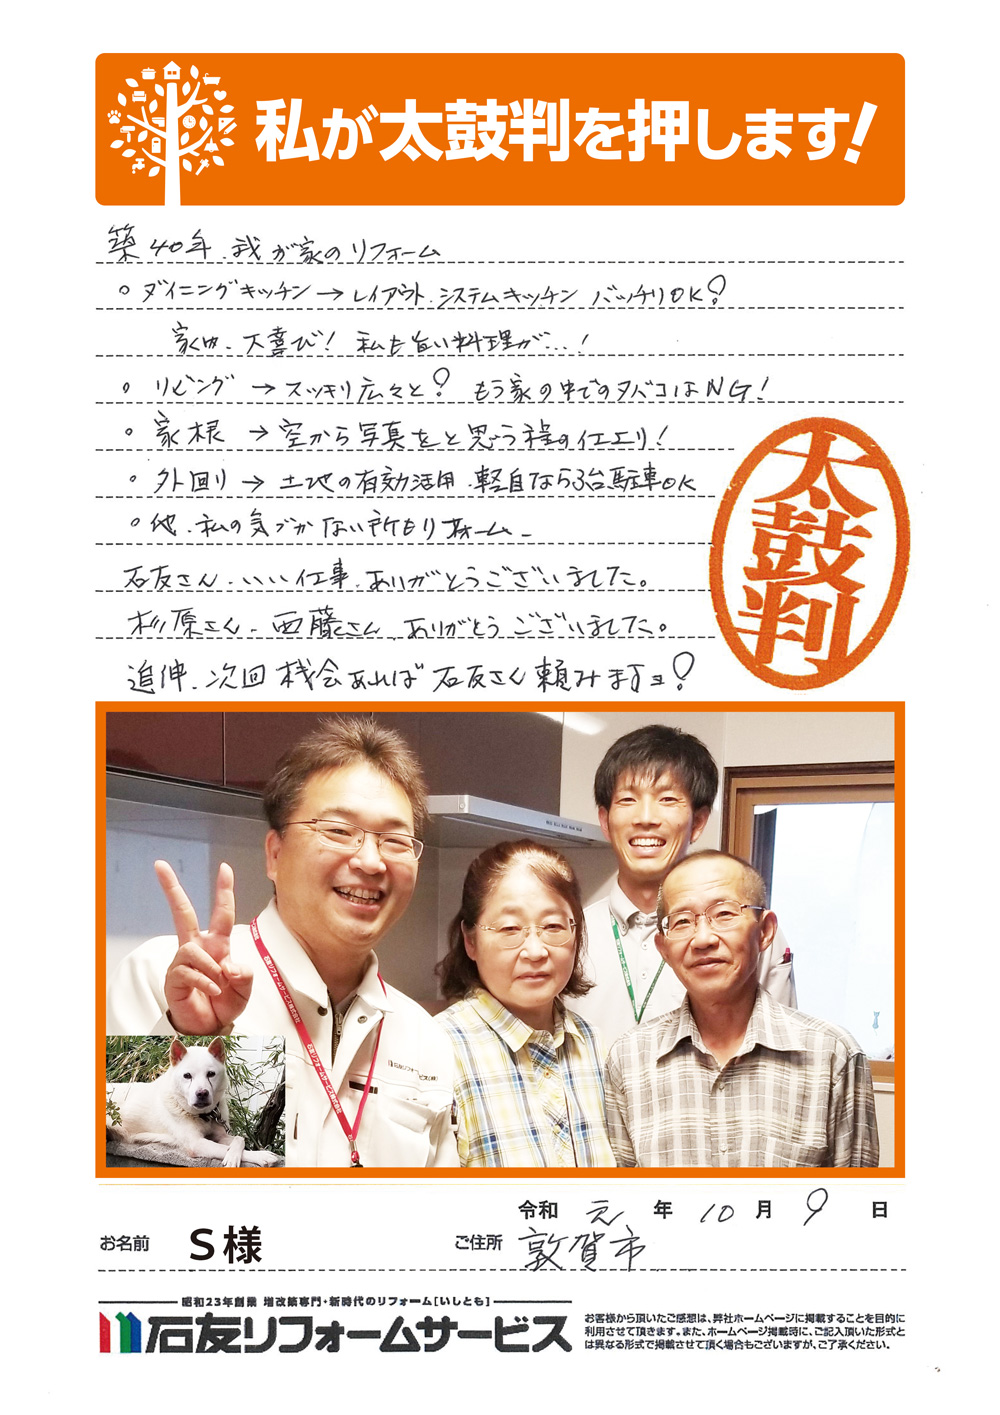 私が太鼓判を押します!
築40年、我が家のリフォーム
○ ダイニングキッチン → レイアウト、システムキッチン バッチリOK!
家内、大喜び! 私も旨い料理が…!
○ リビング → スッキリ広々と! もう家の中でのタバコはNG!
○ 家根 → 空から写真をと思う程の仕上り!
○ 外回り → 土地の有効活用、軽自なら3台駐車OK
○ 他、私の気づかない所もリフォーム
石友さん、いい仕事、ありがとうございました。
杉原さん、西藤さん、ありがとうございました。
追伸、次回 機会あれば 石友さん頼みますヨ!
太鼓判
石友リフォームサービス株式会社
石友リフォームサービス(株)
令和 元 年 10 月 9 日
お名前 S様 ご住所 敦賀市
昭和23年創業 増改築専門・新時代のリフォーム[いしとも]
石友リフォームサービス
お客様から頂いたご感想は、弊社ホームページに掲載することを目的に
利用させて頂きます。また、ホームページ掲載時に、ご記入頂いた形式と
は異なる形式で掲載させて頂く場合もございますが、ご了承ください。